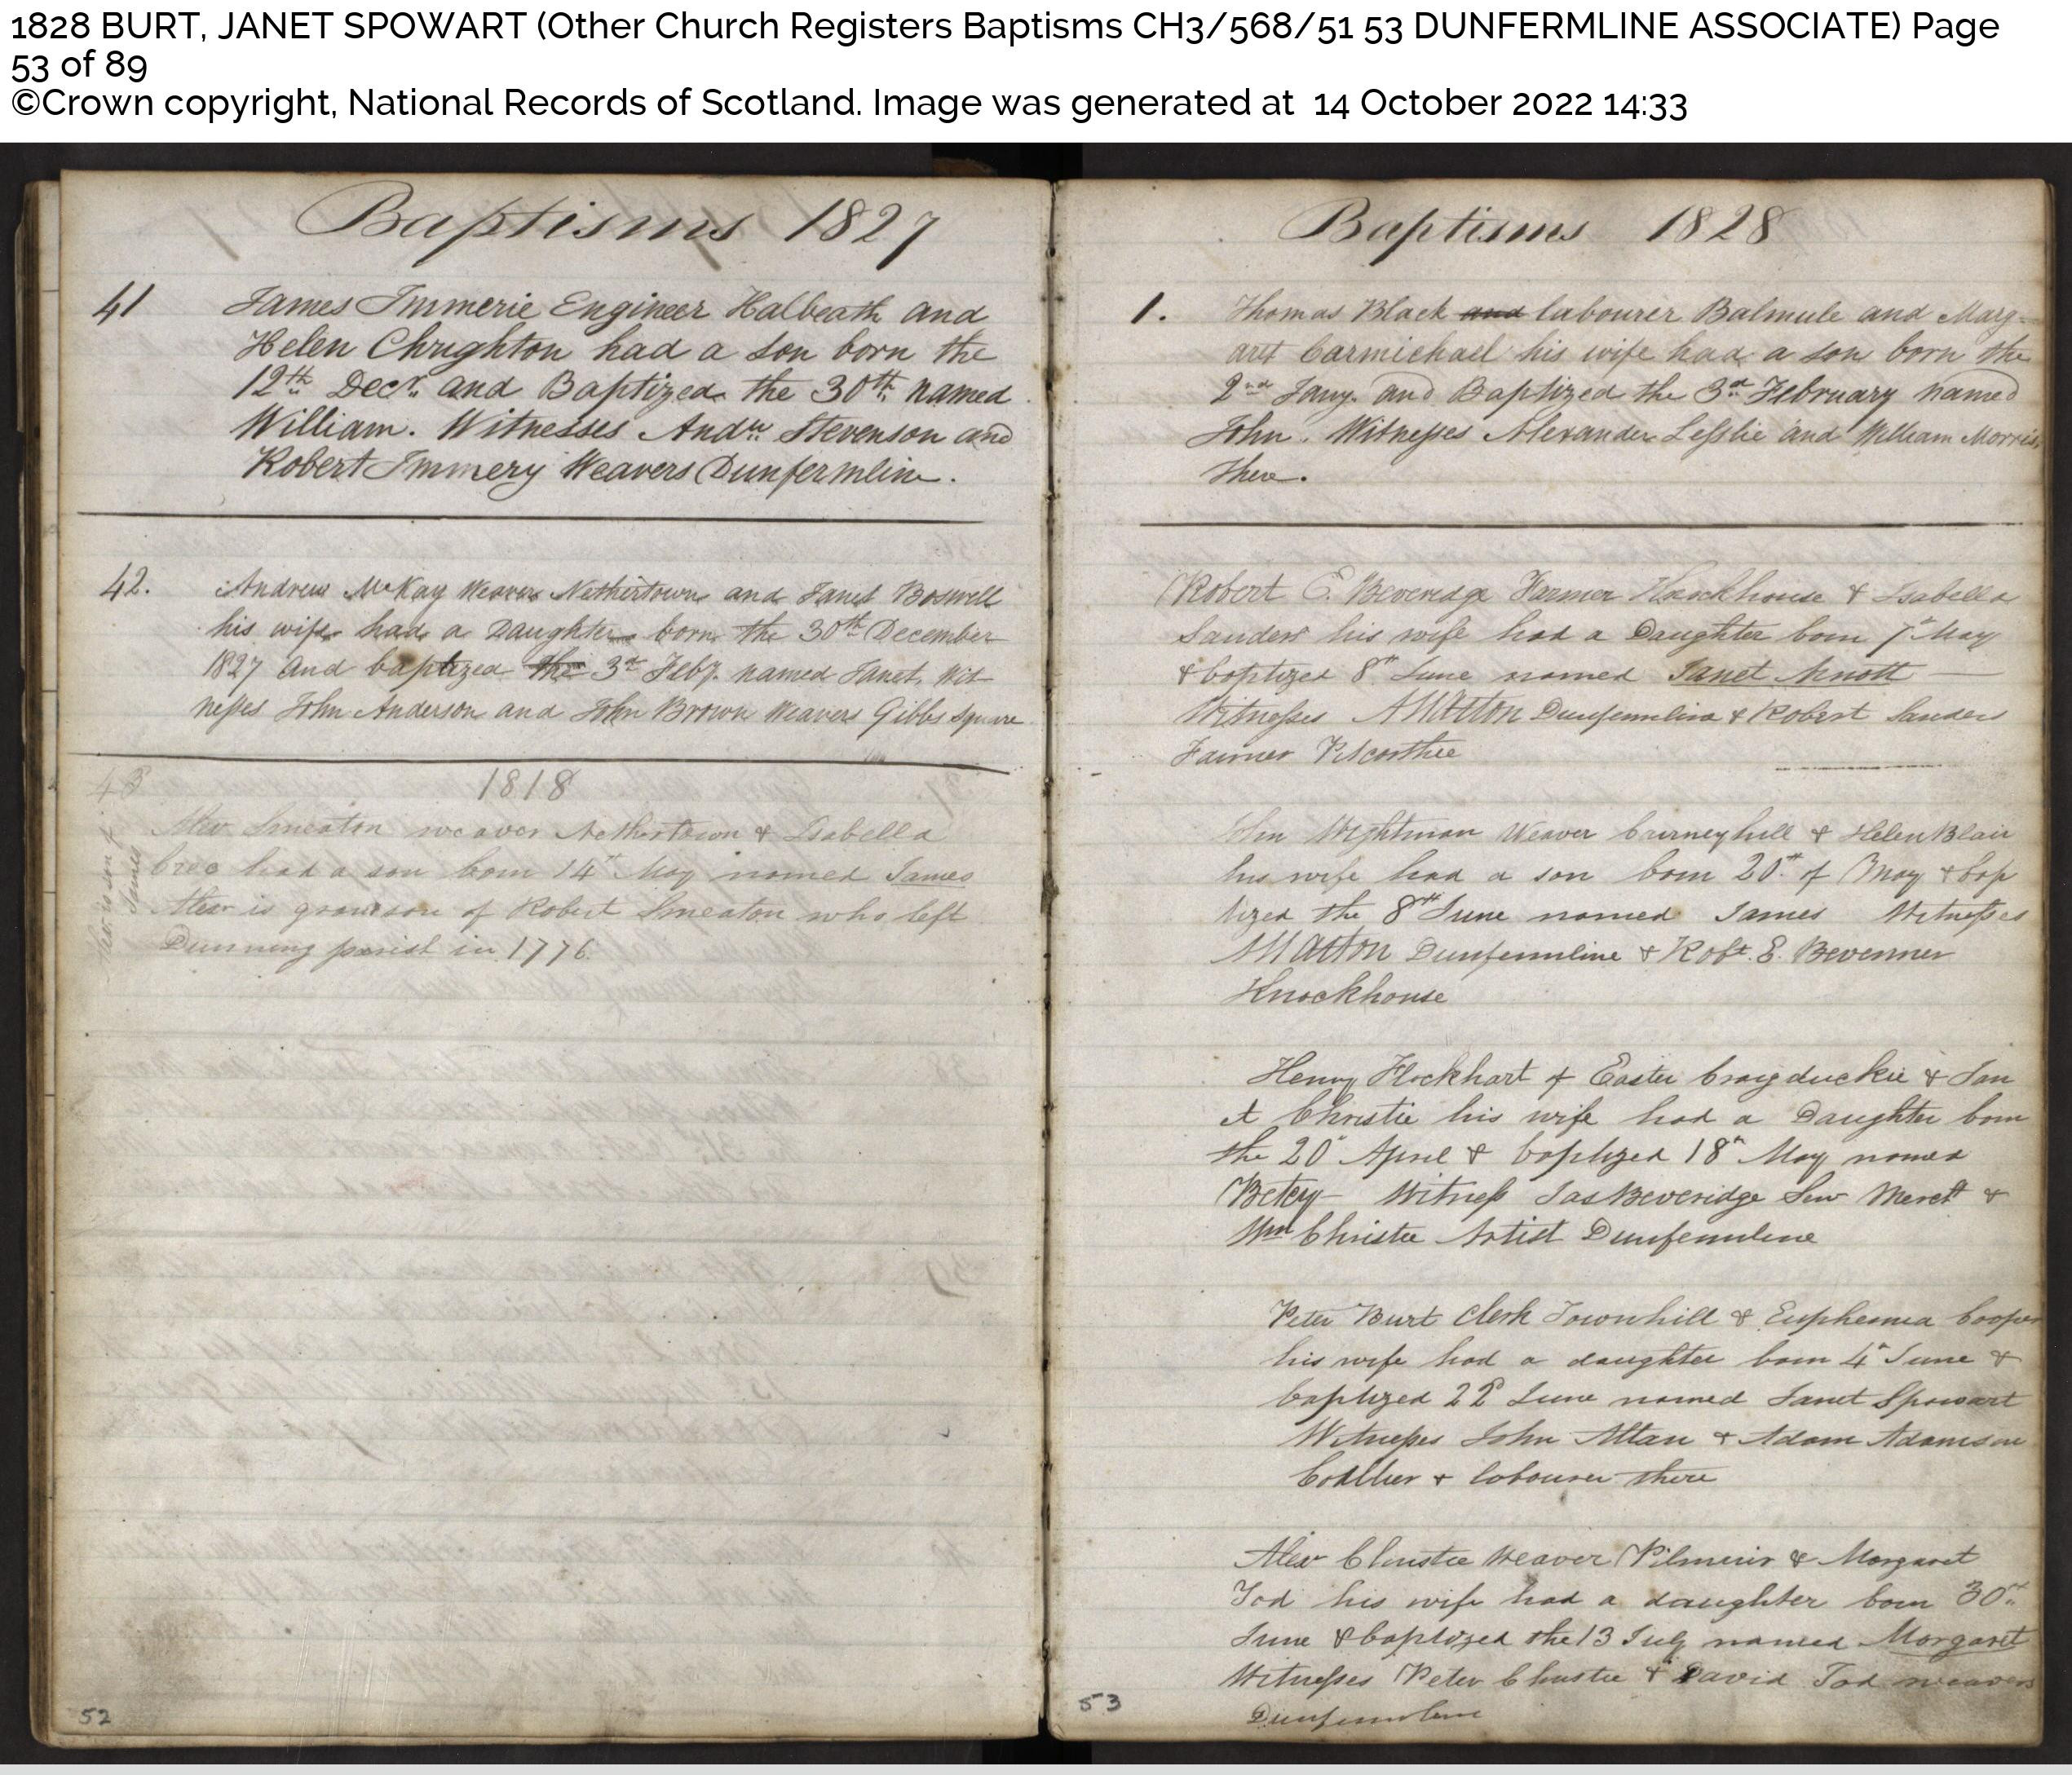 1828 BURT, JANET SPOWART (Other Church Registers Baptisms CH3/568/51 53 DUNFERMLINE ASSOCIATE) Page
53 of 89
©Crown copyright, National Records of Scotland. Image was generated at 14 October 2022 14:33
Baptisms 1827
41 James Immerie Engineer Halbeath and
Helen Chrighton had a son born the
12th Decr. and Baptized the 30th named
William. Witnesses Andw. Stevenson and
Robert Immery Weavers Dunfermline.
42. Andrew McKay Weaver Nethertown and Janet Boswell
his wife had a Daughter born the 30th December
1827 and baptized the 3d Feby. named Janet, Wit
nesses John Anderson and John Brown Weavers Gibbs Square
43 1818
Alexr Smeaton weaver Nethertown & Isabella
had a son born 14th May named James
Alexr is grandson of Robert Smeaton who left
Dunning parish in 1776.
is son of
James
52
Baptisms 1828
1. Thomas Black and labourer Balmule and Marg-
aret Carmichael his wife had a son born the
2nd Jany. and Baptized the 3d February named
John. Witnesses Alexander Lesslie and William Morris
there.
Robert E. Beveridge Farmer Knockhouse & Isabella
Sanders his wife had a Daughter born 7th May
& baptized 8th June named Janet Knott
Witnesses Dunfermline & Robert Sanders
Farmer Pitcorthie
John Wightman Weaver Cairneyhill & Helen Blair
his wife had a son born 20th of May & bap
tized the 8th June named James Witnesses
Dunfermline & Robt. E.
Knockhouse
Henry Flockhart of Easter Craigduckie & Jan
et Christie his wife had a Daughter born
the 20th April & baptized 18th May named
Betsy Witness Jas Beveridge Senr Mercht &
Wm Christie Artist Dunfermline
Peter Burt Clerk Townhill & Euphemia Cooper
his wife had a daughter born 4th June &
baptized 22d June named Janet Spowart
Witnesses John Allan & Adam Adamson
Collier & labourer there
Alexr Christie Weaver Pilmuir & Margaret
Tod his wife had a daughter born 30th
June & baptized the 13 July named Margaret
Witnesses Peter Christie & David Tod weavers
Dunfermline
53